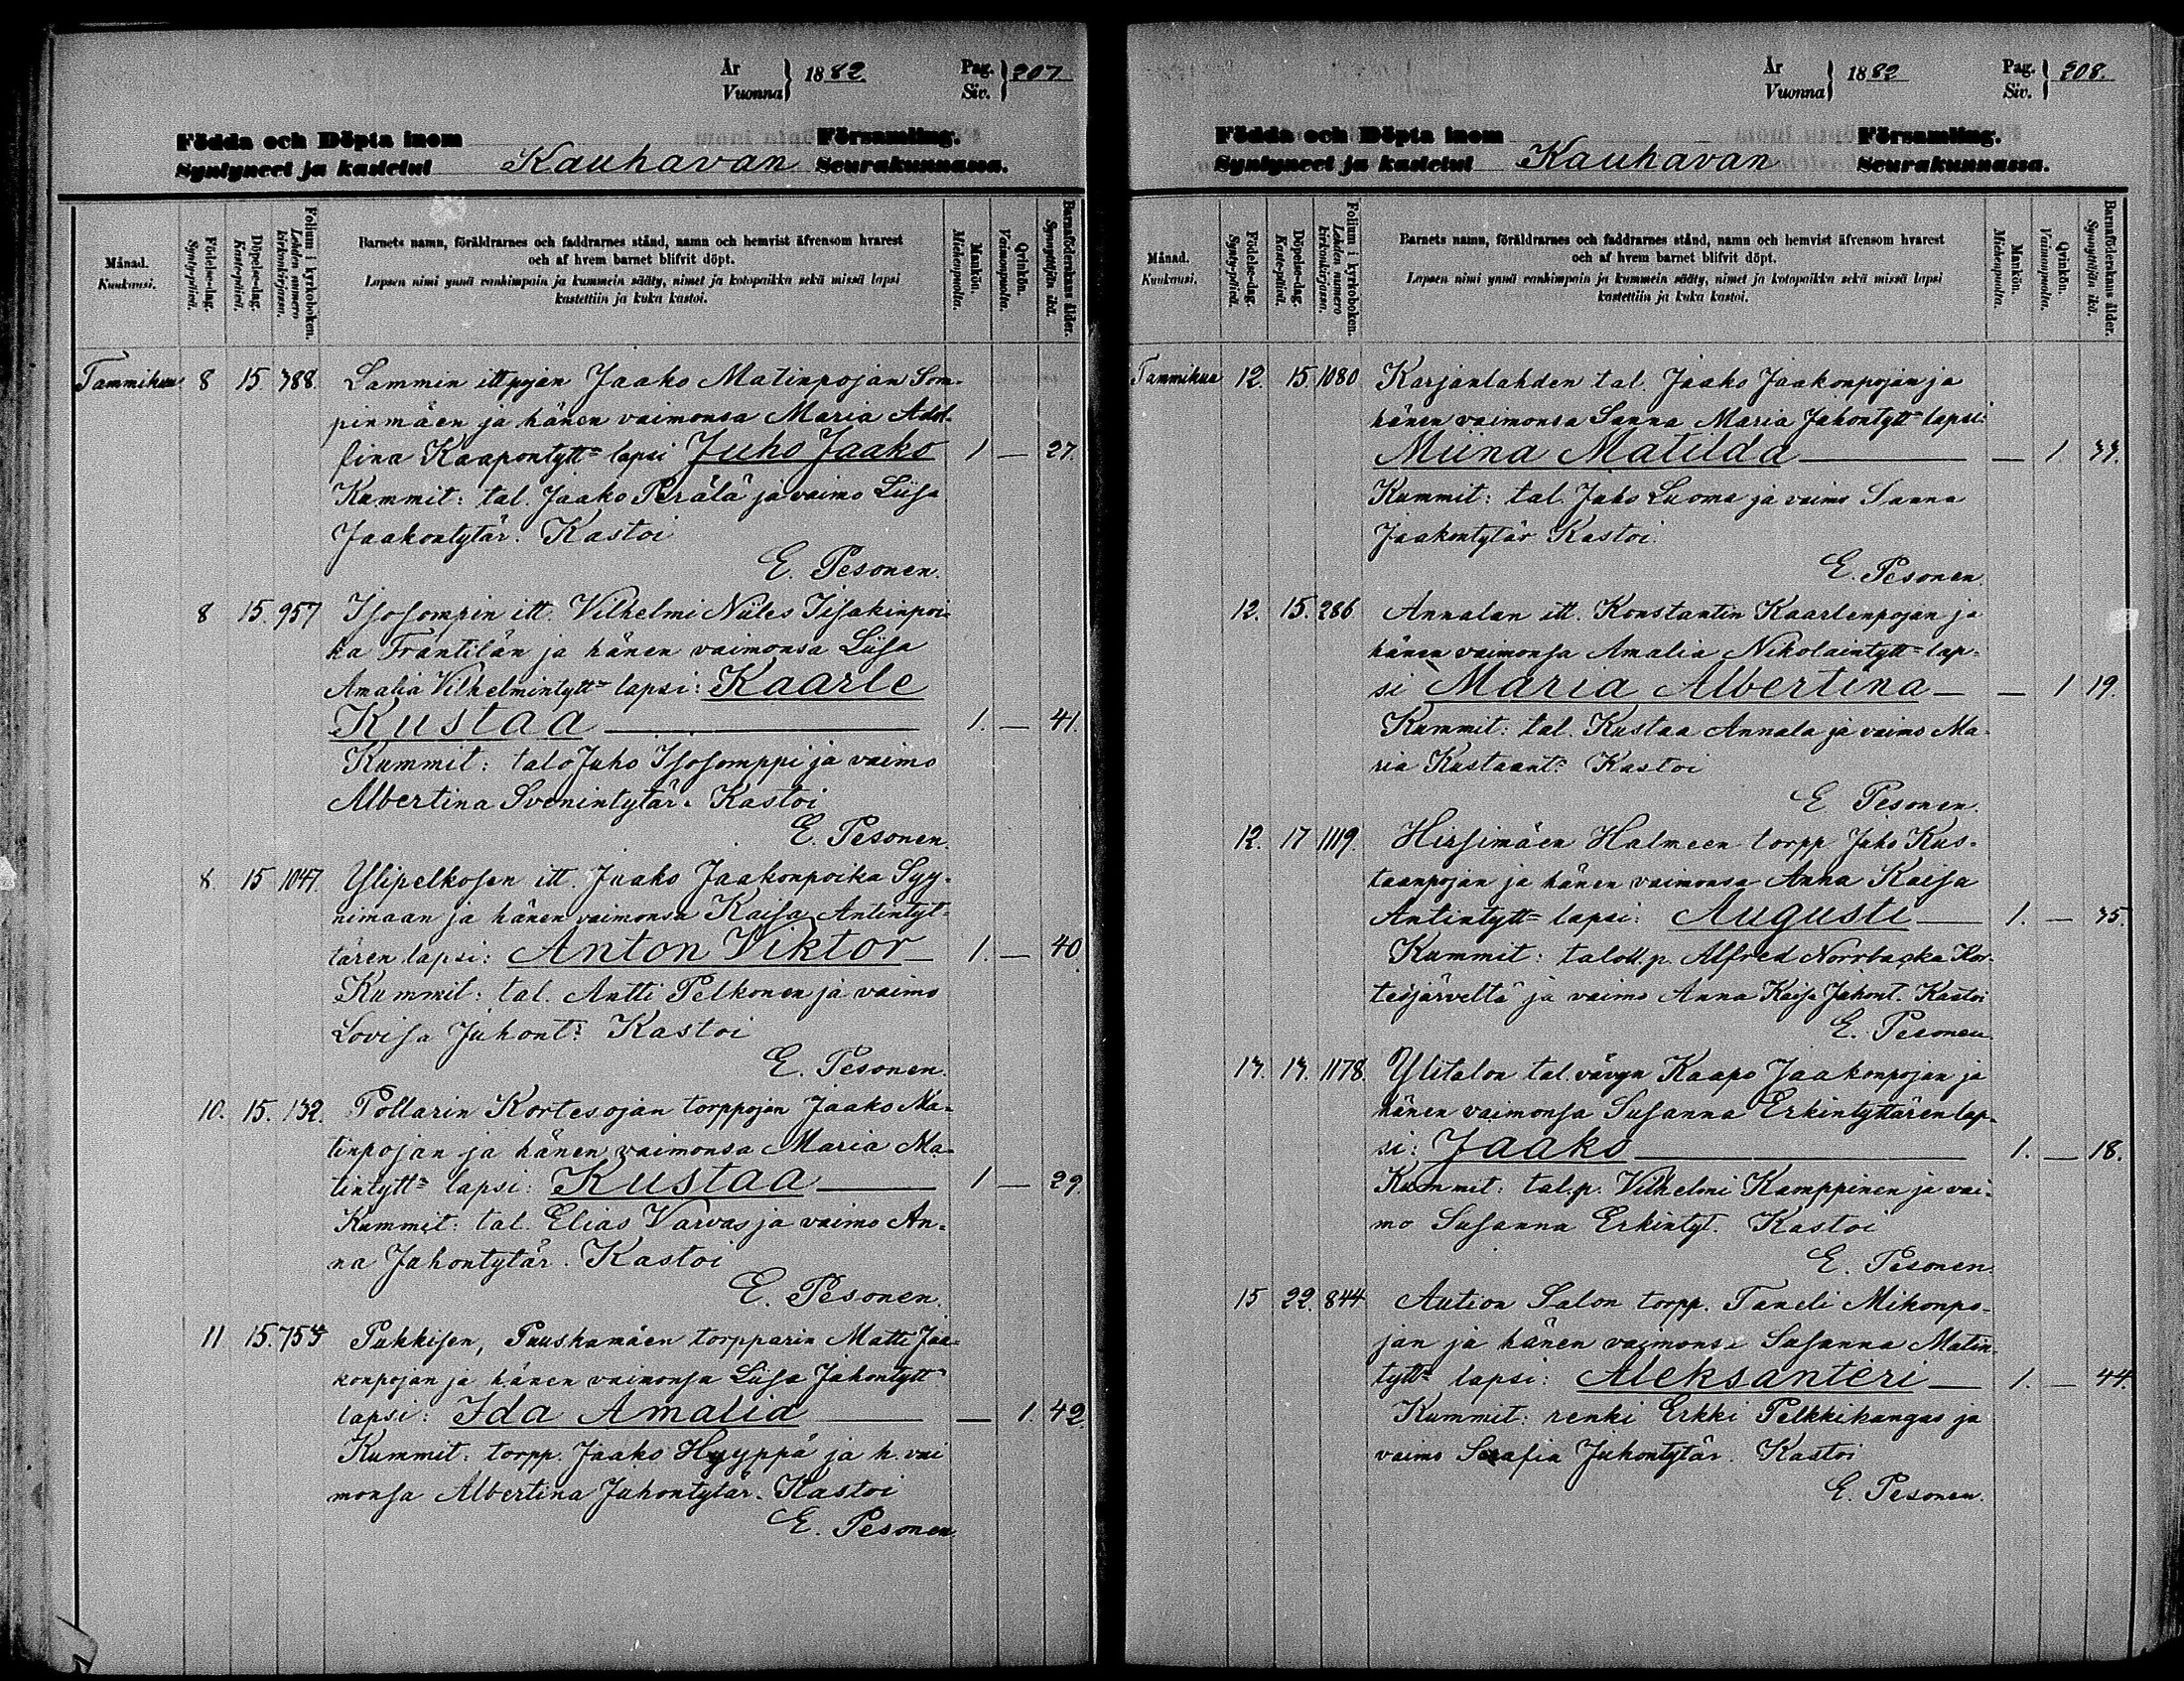 År
Vuonna } 1882. Pag.
Siv. } 207
Födda och Döpta inom Församling.
Syntyneet ja kastetut Kauhavan Seurakunnassa.
Månad.
Kuukausi.
Födelse-dag.
Synty-päivä.
Döpelse-dag.
Kaste-päivä.
Folium i kyrkoboken.
Lehden numero
kirkonkirjassa.
Barnets namn, föräldrarnes och faddrarnes stånd, namn och hemvist äfvensom hvarest
och af hvem barnet blifvit döpt.
Lapsen nimi ynnä vanhimpain ja kummein sääty, nimet ja kotopaikka sekä missä lapsi
kastettiin ja kuka kastoi.
Mankön.
Miehenpuolta.
Qvinkön.
Vaimonpuolta.
Barnaföderskans ålder.
Synnyttäjän ikä.
Tammikuu 8 15 388. Lammin itt.pojan Jaako Matinpojan Som-
pinmäen ja hänen vaimonsa Maria Adol-
fina Kaapontytt= lapsi Juho Jaako 1 — 27.
Kummit: tal. Jaako Perälä ja vaimo Liisa
Jaakontytär. Kastoi
E. Pesonen.
8 15. 957 Isosompin itt. Vilhelmi Niiles Iisakinpoi-
ka Frantilän ja hänen vaimonsa Liisa
Amalia Vilhelmintytt= lapsi: Kaarle
Kustaa 1. — 41.
Kummit: talo Juho Isosomppi ja vaimo
Albertina Svenintytär. Kastoi
E. Pesonen.
8. 15 1047. Ylipelkosen itt. Jaako Jaakonpoika Syy-
nimaan ja hänen vaimonsa Kaisa Antintyt-
tären lapsi: Anton Viktor 1. — 40.
Kummit: tal. Antti Pelkonen ja vaimo
Lovisa Juhont: Kastoi
E. Pesonen.
10. 15. 132. Pollarin Kortesojan torppojan Jaako Ma-
tinpojan ja hänen vaimonsa Maria Ma-
tintytt= lapsi: Kustaa 1 — 29.
Kummit: tal. Elias Varvas ja vaimo An-
na Juhontytär. Kastoi
E. Pesonen.
11 15. Pukkisen, Puuskamäen torpparin Matti Jaa-
konpojan ja hänen vaimonsa Liisa Juhontytt=
lapsi: Ida Amalia — 1. 42.
Kummit: torpp. Jaako Hyyppä ja h. vai
monsa Albertina Juhontytär. Kastoi
E. Pesonen.
År
Vuonna } 1882 Pag.
Siv. } 208.
Födda och Döpta inom Församling.
Syntyneet ja kastetut Kauhavan Seurakunnassa.
Månad.
Kuukausi.
Födelse-dag.
Synty-päivä.
Döpelse-dag.
Kaste-päivä.
Folium i kyrkoboken.
Lehden numero
kirkonkirjassa.
Barnets namn, föräldrarnes och faddrarnes stånd, namn och hemvist äfvensom hvarest
och af hvem barnet blifvit döpt.
Lapsen nimi ynnä vanhimpain ja kummein sääty, nimet ja kotopaikka sekä missä lapsi
kastettiin ja kuka kastoi.
Mankön.
Miehenpuolta.
Qvinkön.
Vaimonpuolta.
Barnaföderskans ålder.
Synnyttäjän ikä.
Tammikuu 12. 15. 1080 Karjanlahden tal. Jaako Jaakonpojan ja
hänen vaimonsa Sanna Maria Juhontytt= lapsi:
Miina Matilda — 1. 33.
Kummit: tal. Juho Luoma ja vaimo Sanna
Jaakontytär Kastoi.
E. Pesonen
12. 15. 286 Annalan itt. Konstantin Kaarlenpojan ja
hänen vaimonsa Amalia Nikolaintytt= lap-
si Maria Albertina — 1 19.
Kummit: tal. Kustaa Annala ja vaimo Ma-
ria Kustaant: Kastoi
E. Pesonen.
12. 17 1119. Hirsimäen Halmeen torpp Juho Kus-
taanpojan ja hänen vaimonsa Anna Kaisa
Antintytt= lapsi: Augusti 1. — 35.
Kummit: taloll.p. Alfred Norrbacka Kor-
tesjärveltä ja vaimo Anna Kaisa Juhont. Kastoi
E. Pesonen
13. 17. 1178. Ylitalon tal.vävyn Kaapo Jaakonpojan ja
hänen vaimonsa Susanna Erkintyttären lap-
si: Jaako 1. — 18.
Kummit: tal.p. Vilhelmi Kamppinen ja vai-
mo Susanna Erkintyt. Kastoi
E. Pesonen.
15 22. 844 Aution Salon torpp. Taneli Mikonpo-
jan ja hänen vaimonsa Susanna Matin-
tytt= lapsi: Aleksanteri 1. — 44.
Kummit: renki Erkki Pelkkikangas ja
vaimo Serafia Juhontytär. Kastoi
E. Pesonen.